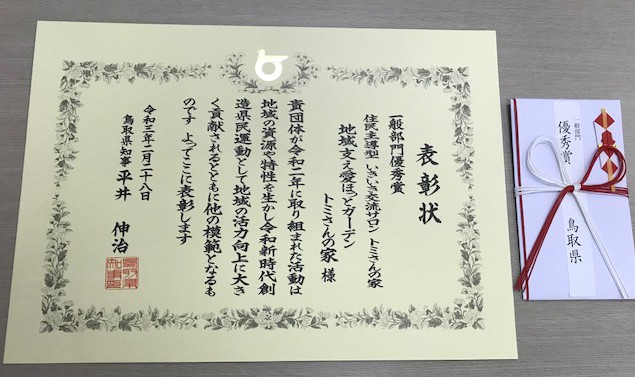 表彰状
一般部門優秀賞
住民主導型 いきいき交流サロン トミさんの家
地域支え愛ほっとガーデン
トミさんの家 様
貴団体が令和二年に取り組まれた活動は
地域の資源や特性を生かし令和新時代創
造県民運動として地域の活力向上に大き
く貢献されるとともに他の模範となるも
のです よってここに表彰します
令和三年二月二十八日
鳥取県知事 平井 伸治
一般部門
優秀賞
鳥取県